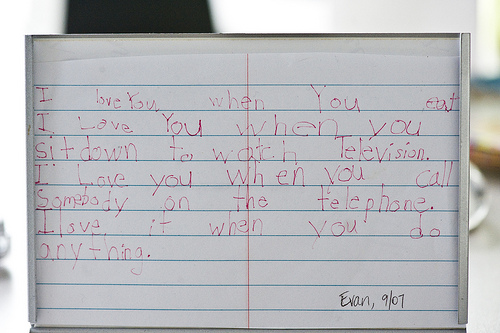 I love You when You eat
I Love You when you
sitdown to watch Television.
I Love you when you call
Somebody on the telephone.
I love it when you do
any thing.
Evan, 9/07